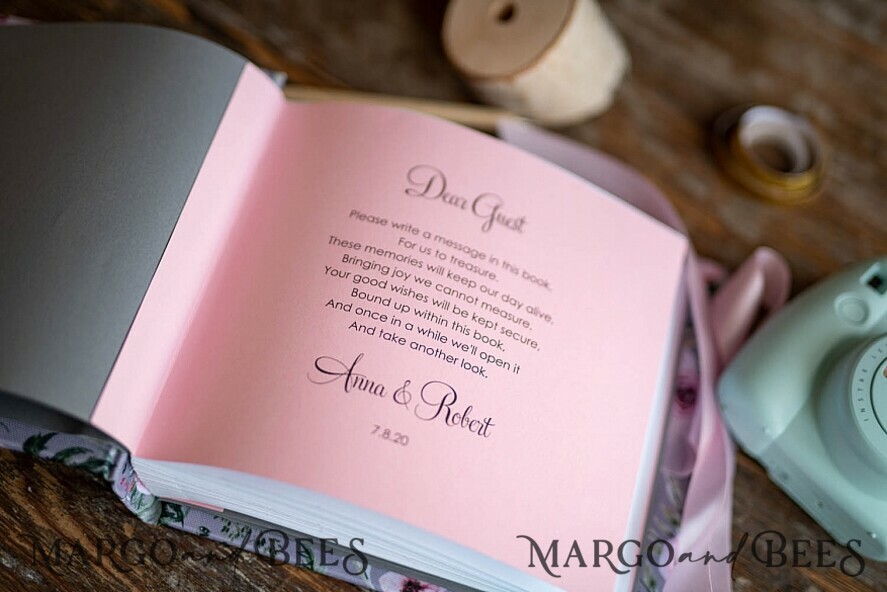 Dear Guest
Please write a message in this book.
For us to treasure.
These memories will keep our day alive,
Bringing joy we cannot measure.
Your good wishes will be kept secure,
Bound up within this book.
And once in a while we'll open it
And take another look.
Anna & Robert
7.8.20
INSTAX
MARGO and BEES
MARGO and BEES